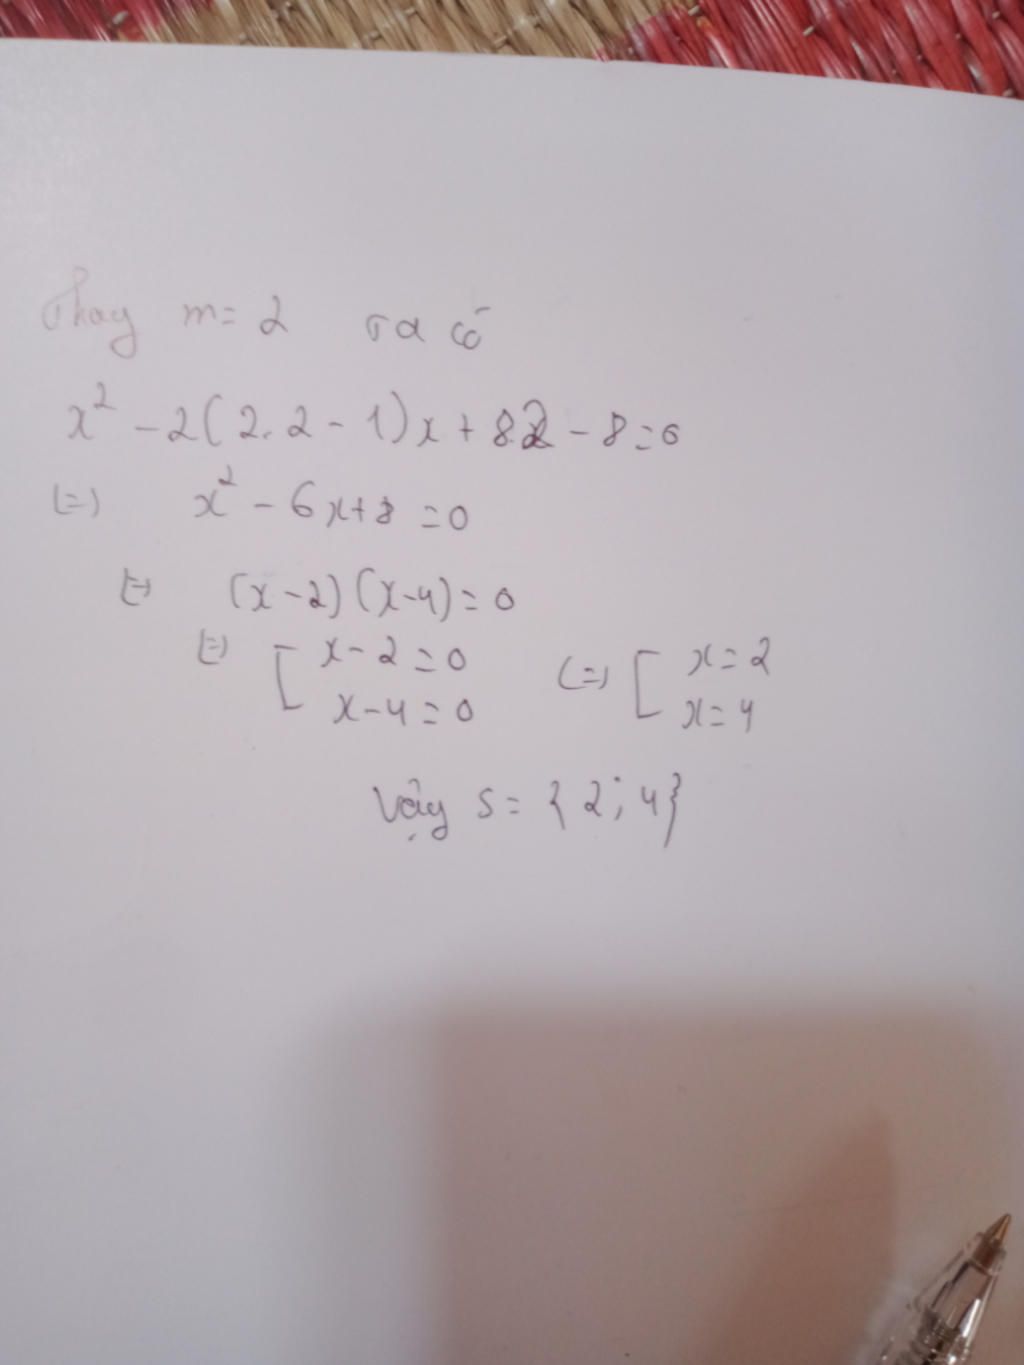 Thay m = 2 ta có
x² - 2(2.2 - 1)x + 8.2 - 8 = 0
(=) x² - 6x + 8 = 0
(=) (x - 2)(x - 4) = 0
(=) [ x - 2 = 0 (=) [ x = 2
x - 4 = 0 x = 4
Vậy S = {2; 4}